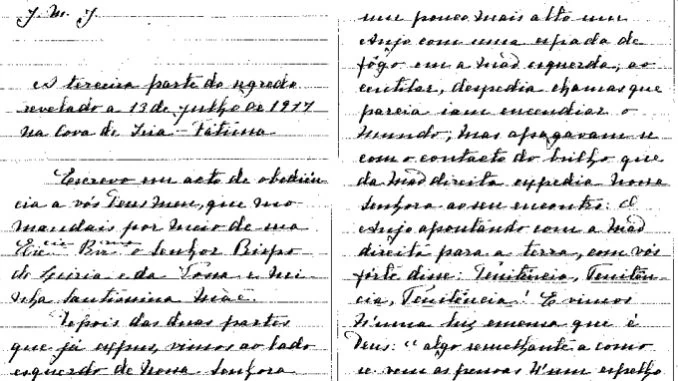 J. M. J.
A terceira parte do segredo
revelado a 13 de julho de 1917
na Cova de Iria - Fátima
Escrevo em acto de obediên-
cia a vós Deus meu, que mo
mandais por meio de sua
Ex.cia Rev.ma o Senhor Bispo
de Leiria e da Vossa e mi-
nha Santissima Mãe.
Depois das duas partes
que já expus, vimos ao lado
esquerdo de Nossa Senhora
um pouco mais alto um
Anjo com uma espada de
fôgo em a mão esquerda; ao
centilar, despedia chamas que
parecia iam encendiar o
mundo; mas apagavam-se
com o contacto do brilho que
da mão direita expedia Nossa
Senhora ao seu encontro: O
Anjo apontando com a mão
direita para a terra, com vós
forte disse: Penitência, Penitên-
cia, Penitência! E vimos
n'uma luz emensa que é
Deus: "algo semelhante a como
se vem as pessoas n'um espelho